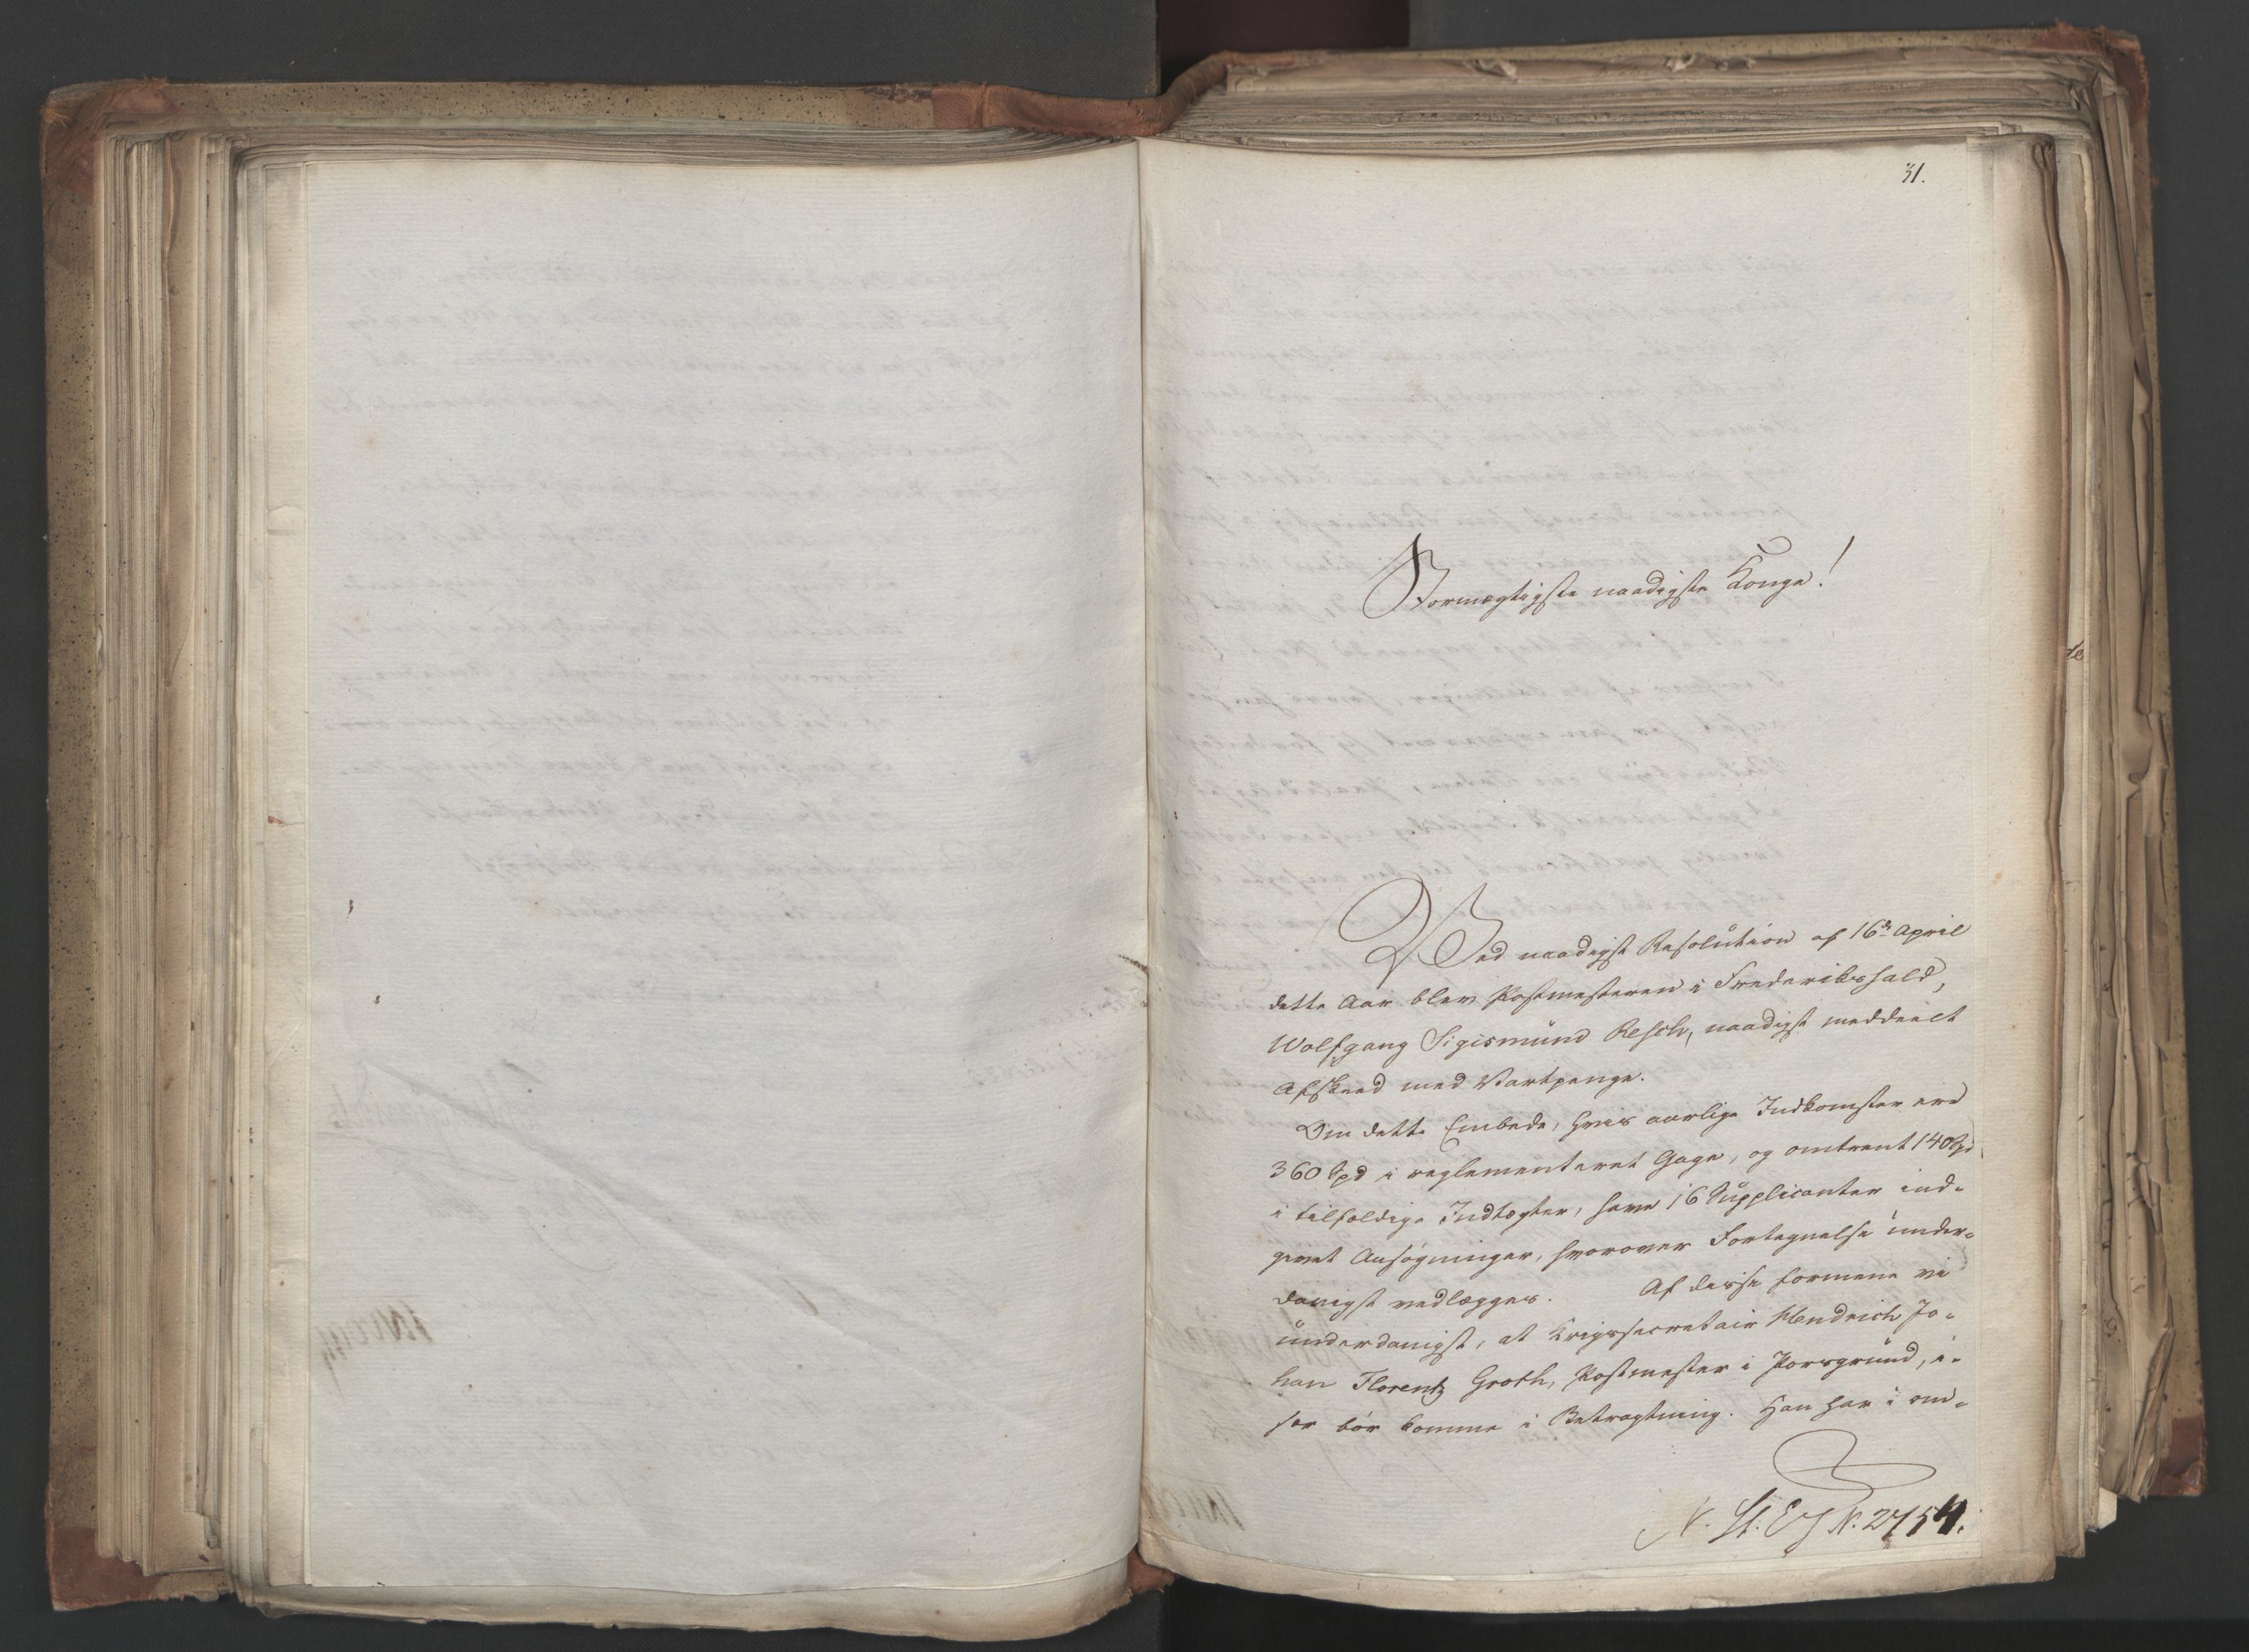 31.
Stormægtigste naadigste Konge!
Ved naadigst Resolution af 16de April
dette Aar blev Postmesteren i Frederikshald,
Wolfgang Sigismund Resch, naadigst meddeelt
Afskeed med Vartpenge.
Om dette Embede, hvis aarlige Indkomster ere
360 Spd i reglementeret Gage, og omtrent 140 Spd
i tilfældige Indtægter, have 16 Supplicanter ind-
givet Ansøgninger, hvorover Fortegnelse under-
danigst vedlægges. Af disse formene vi
underdanigst, at Krigssecretair Hendrich Jo-
han Florentz Groth, Postmester i Porsgrund, i-
sær bør komme i Betragtning. Han har i om-
N. St. E. J. N. 2754.